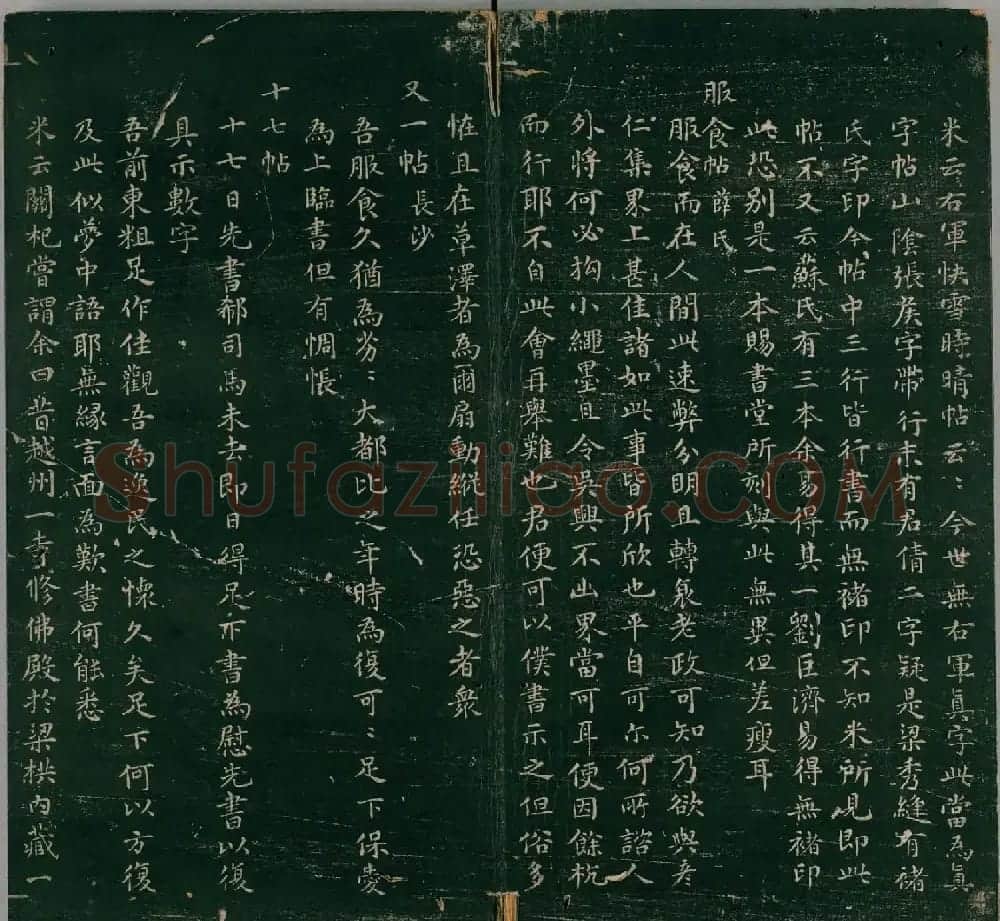 米云右軍快雪時晴帖云〻今世無右軍真字此當為真
字帖山陰張侯字帶行末有君倩二字疑是梁秀縫有褚
氏字印今帖中三行皆行書而無褚印不知米所見即此
帖不又云蘇氏有三本余易得其一劉巨濟易得無褚印
此恐别是一本賜書堂所刻與此無異但差瘦耳
服食帖薛氏
服食而在人間此速弊分明且轉衰老政可知乃欲與彦
仁集界上甚佳諸如此事皆所欣也平自可尓何所諮人
外將何必拘小繩墨且令吳興不出界當可耳便因餘杭
而行耶不自此會再舉難也君便可以僕書示之但俗多
恠且在草澤者為爾扇動縱任恐惡之者衆
又一帖長沙
吾服食久猶為劣〻大都比之年時為復可〻足下保愛
為上臨書但有惆悵
十七帖
十七日先書郗司馬未去即日得足下書為慰先書以復
具示數字
吾前東粗足作佳觀吾為逸民之懷久矣足下何以方復
及此似夢中語耶無縁言面為歎書何能悉
米云關杞嘗謂余曰昔越州一寺修佛殿於梁栱内藏一
Shufaziliao.COM